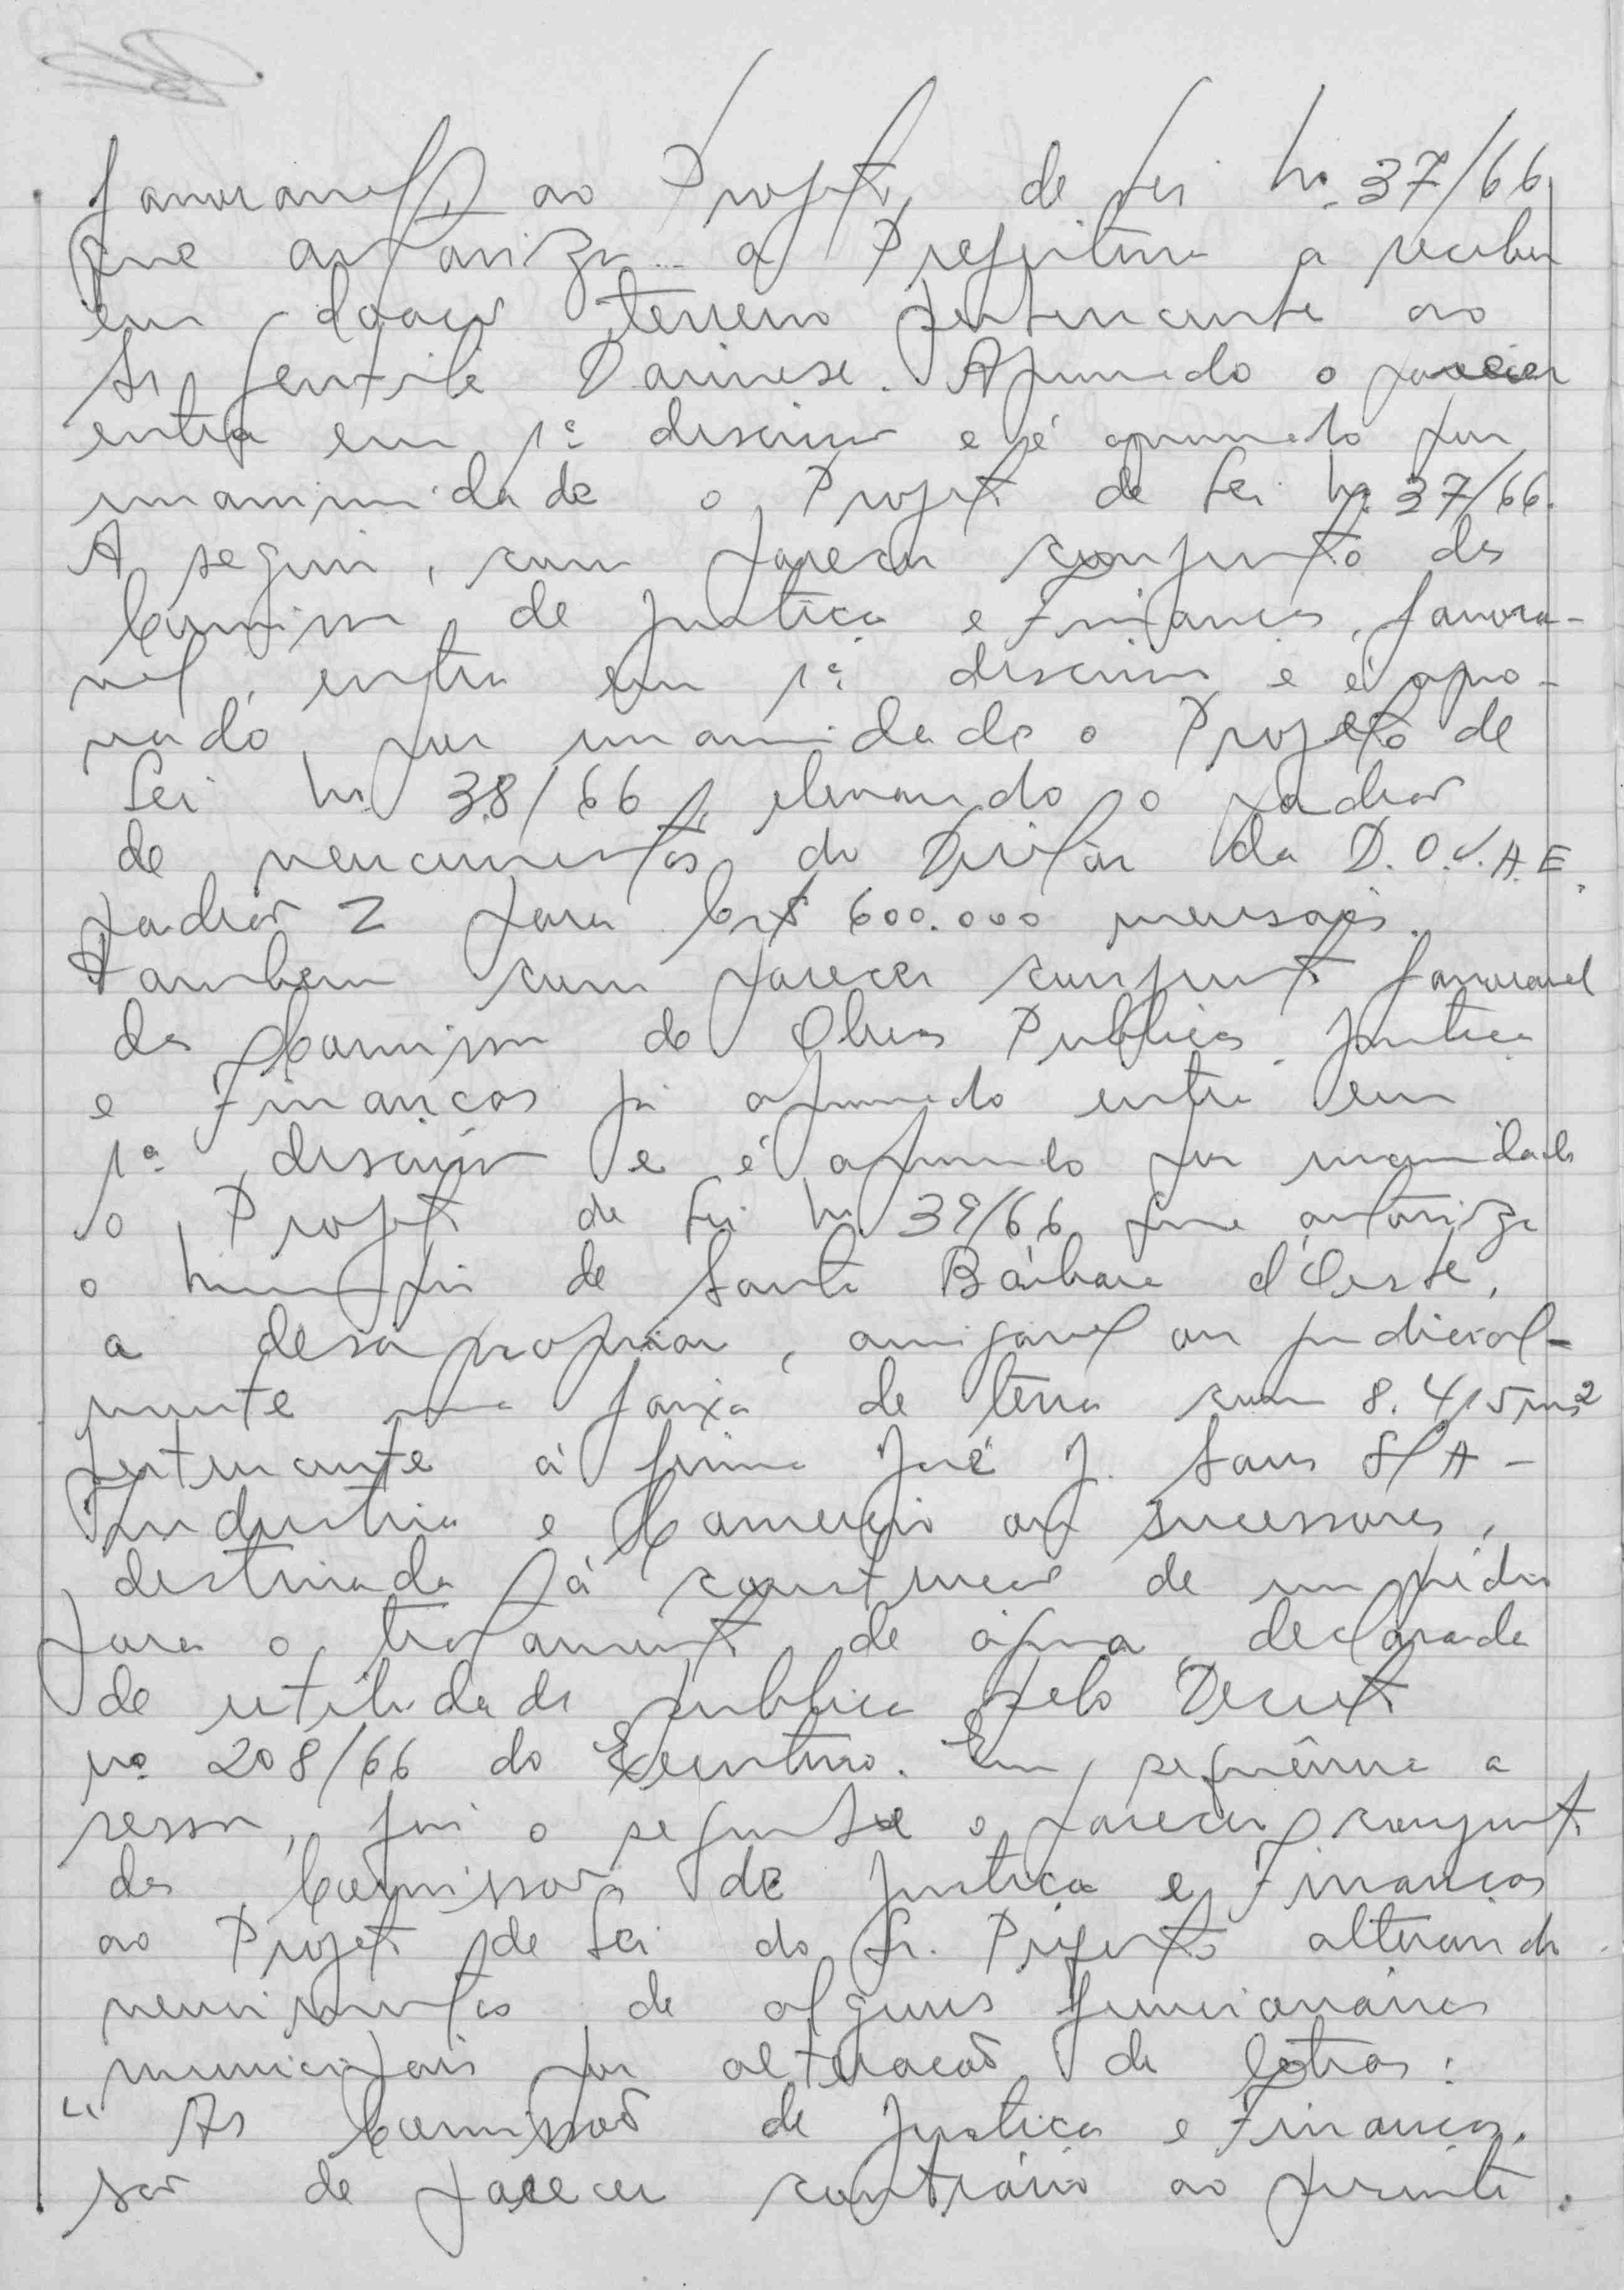 favoravel, ao Projeto de Lei nº 37/66
que autoriza a Prefeitura a receber
em doação terreno pertencente ao
Sr. Gentile Dainese. Aprovado o parecer
entra em 1ª discussão e é aprovado por
unanimidade o Projeto de Lei nº 37/66.
A seguir, com parecer conjunto das
Comissões de Justiça e Finanças, favora-
vel, entra em 1ª discussão e é apro-
vado, por unanimidade o Projeto de
Lei nº 38/66, elevando o padrão
de vencimentos do Diretor da D.O.V.A.E.
padrão Z para Cr$ 600.000 mensais.
Tambem com parecer conjunto favoravel
das Comissões de Obras Publicas, Justiça
e Finanças já aprovado entra em
1ª discussão e é aprovado por unanimidade
o Projeto de Lei nº 39/66 que autoriza
o Municipio de Santa Bárbara d'Oeste,
a desapropriar, amigavel ou judicial-
mente uma faixa de terra com 8.415 m²
pertencente à firma José J. Sans S/A -
Industria e Comercio ou sucessores,
destinada à construção de um prédio
para o tratamento de água, declarada
de utilidade publica pelo Decreto
nº 208/66 do Executivo. Em sequência a
sessão, foi o seguinte o parecer conjunto
das Comissões de Justiça e Finanças
ao Projeto de Lei do Sr. Prefeito alterando
vencimentos de alguns funcionários
municipais por alteração de letras:
"As Comissões de Justiça e Finanças,
são de parecer contrário ao presente